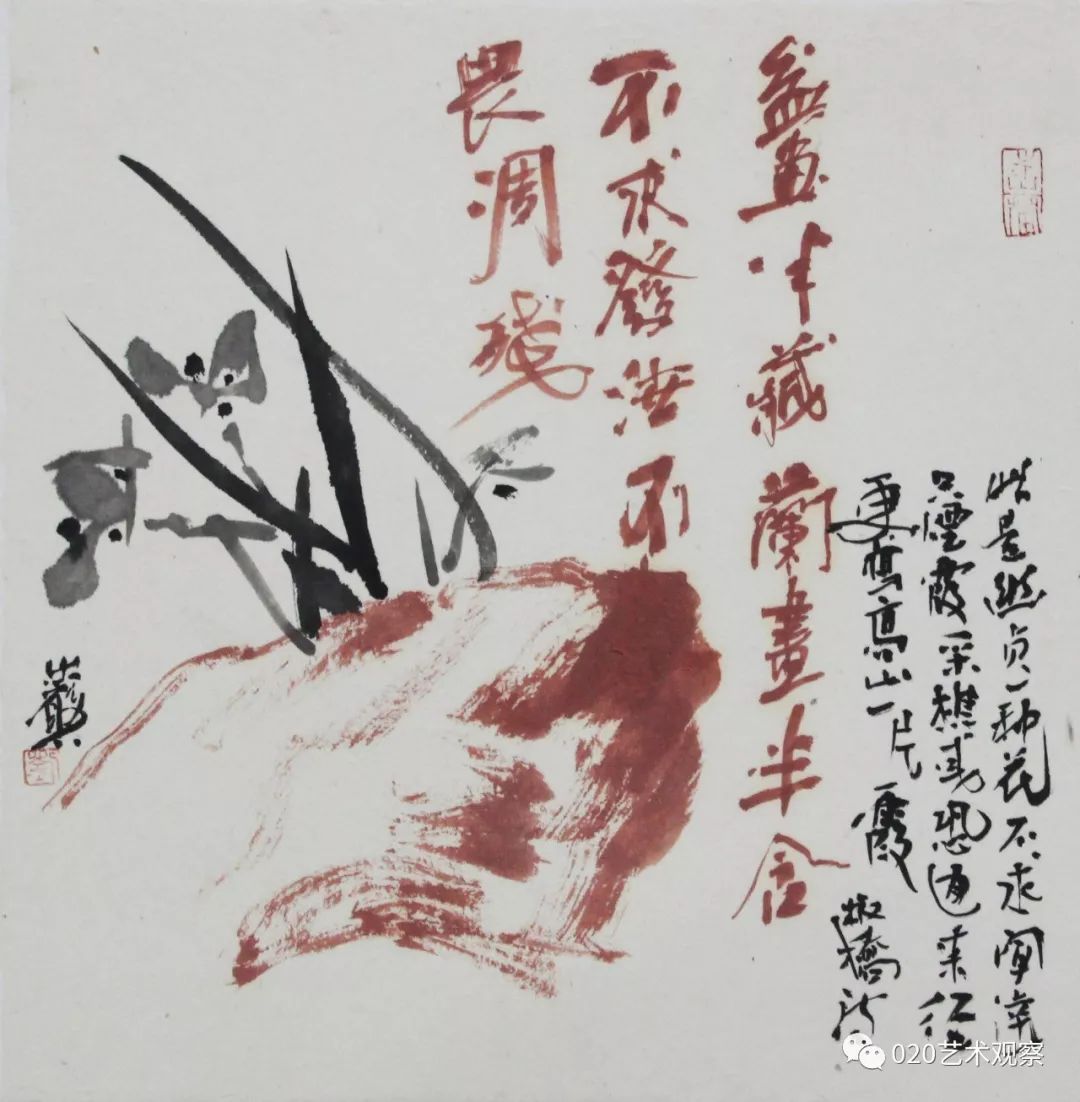 此是幽贞一种花不求闻達
只煙霞采樵或恐通来径
更寫高山一片霞
板橋詩
盆畫半藏蘭畫半含
不求發泄不
畏凋殘
020艺术观察